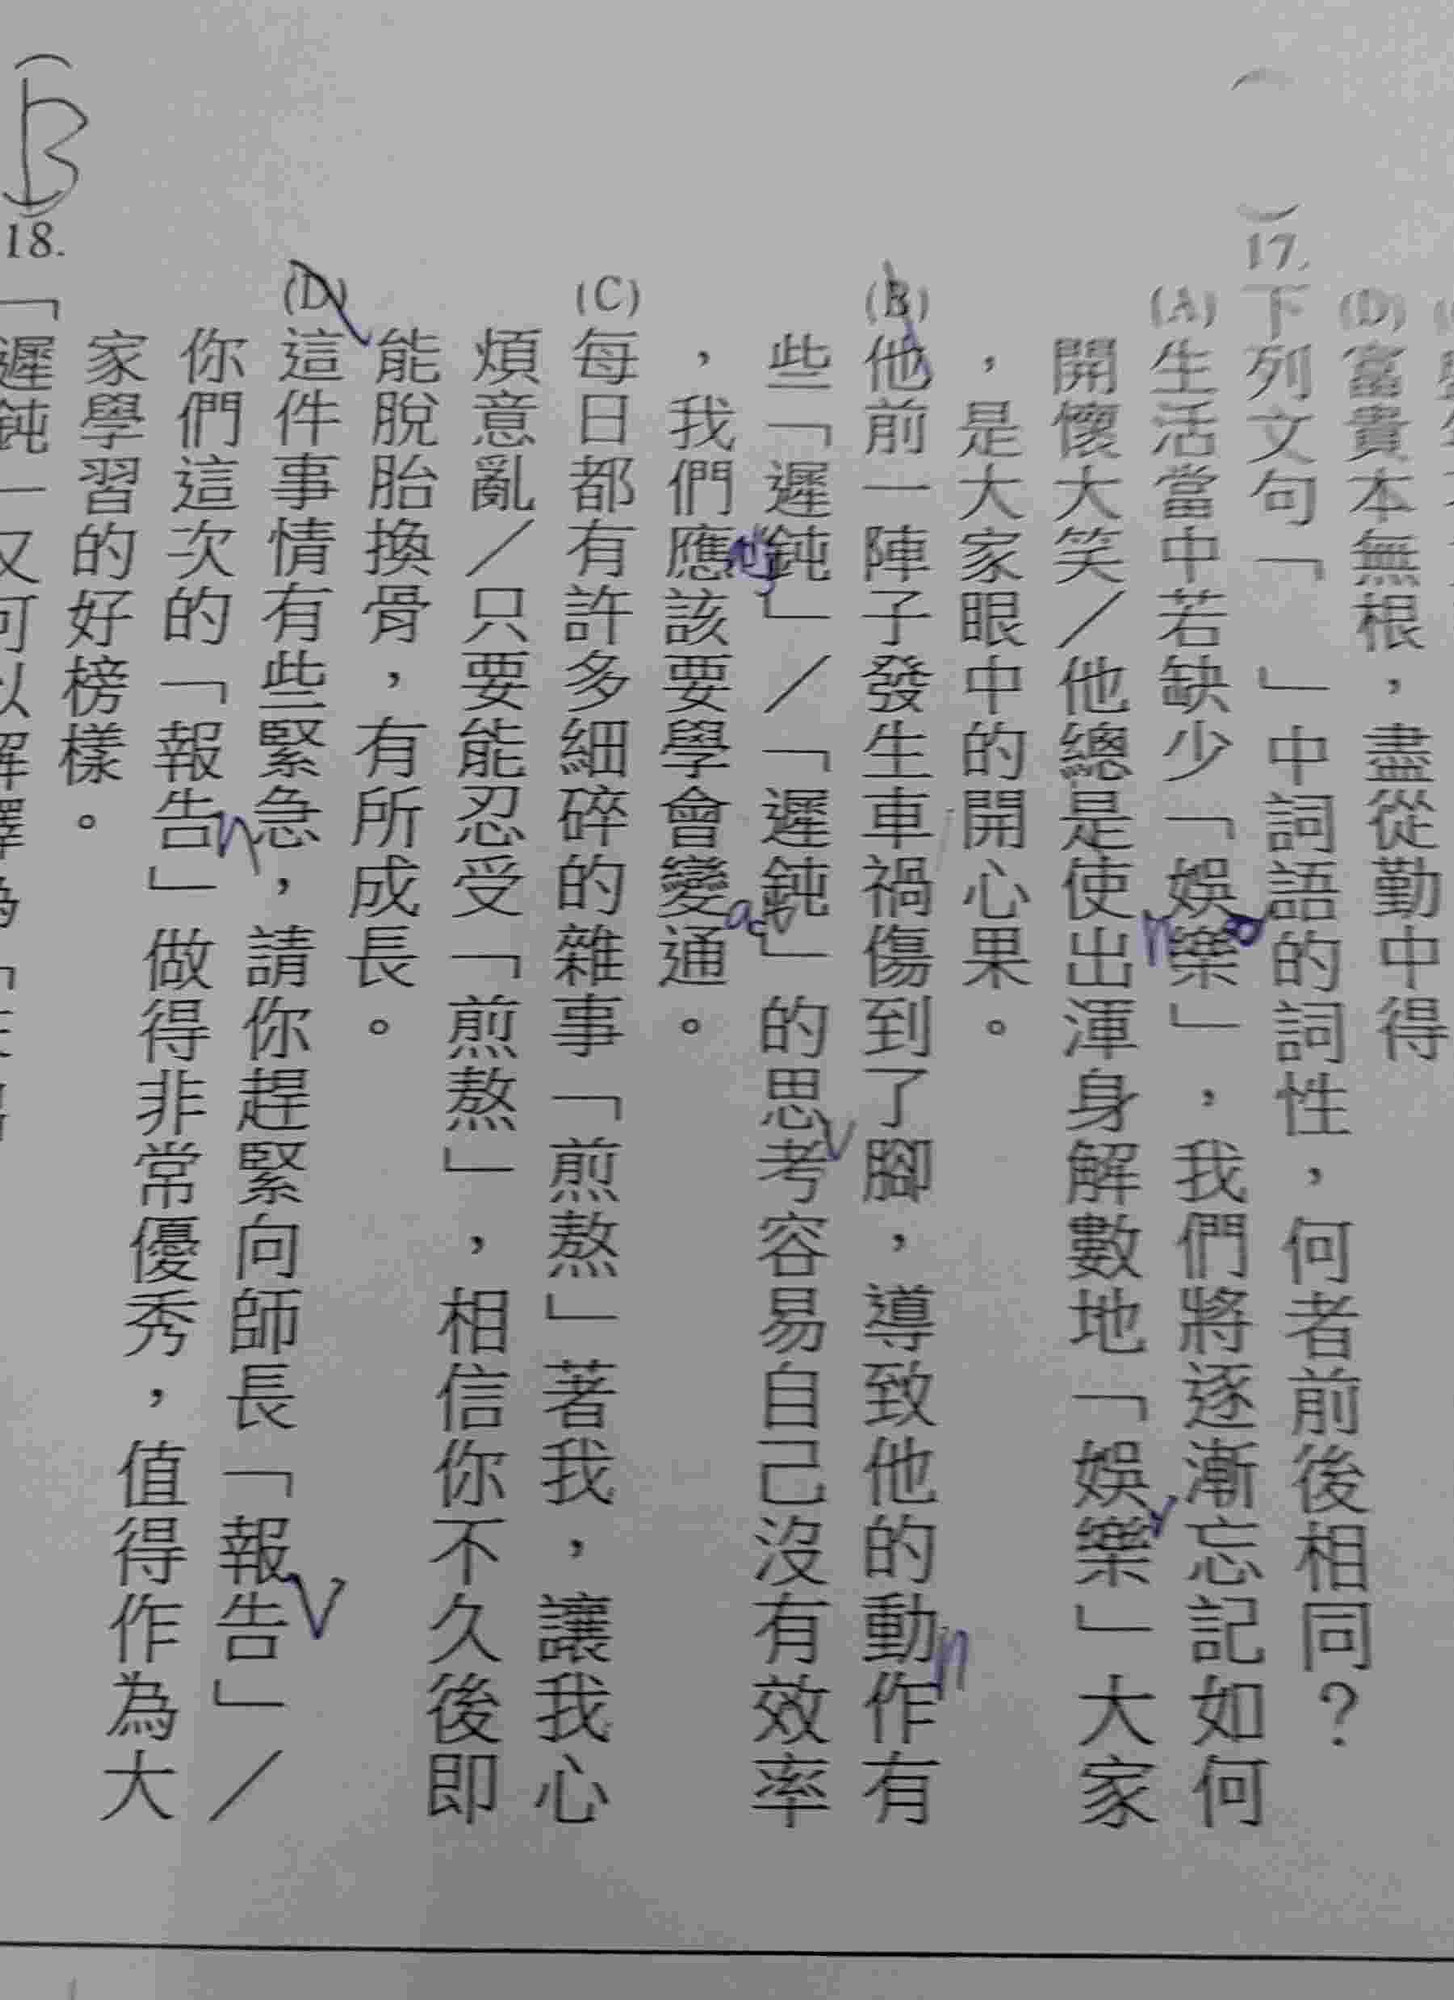 (D)富貴本無根，盡從勤中得
17.下列文句「　」中詞語的詞性，何者前後相同？
(A)生活當中若缺少「娛樂」，我們將逐漸忘記如何
開懷大笑／他總是使出渾身解數地「娛樂」大家
，是大家眼中的開心果。
(B)他前一陣子發生車禍傷到了腳，導致他的動作有
些「遲鈍」／「遲鈍」的思考容易自己沒有效率
，我們應該要學會變通。
(C)每日都有許多細碎的雜事「煎熬」著我，讓我心
煩意亂／只要能忍受「煎熬」，相信你不久後即
能脫胎換骨，有所成長。
(D)這件事情有些緊急，請你趕緊向師長「報告」／
你們這次的「報告」做得非常優秀，值得作為大
家學習的好榜樣。
B
18.「遲鈍
n
v
n
v
n
v